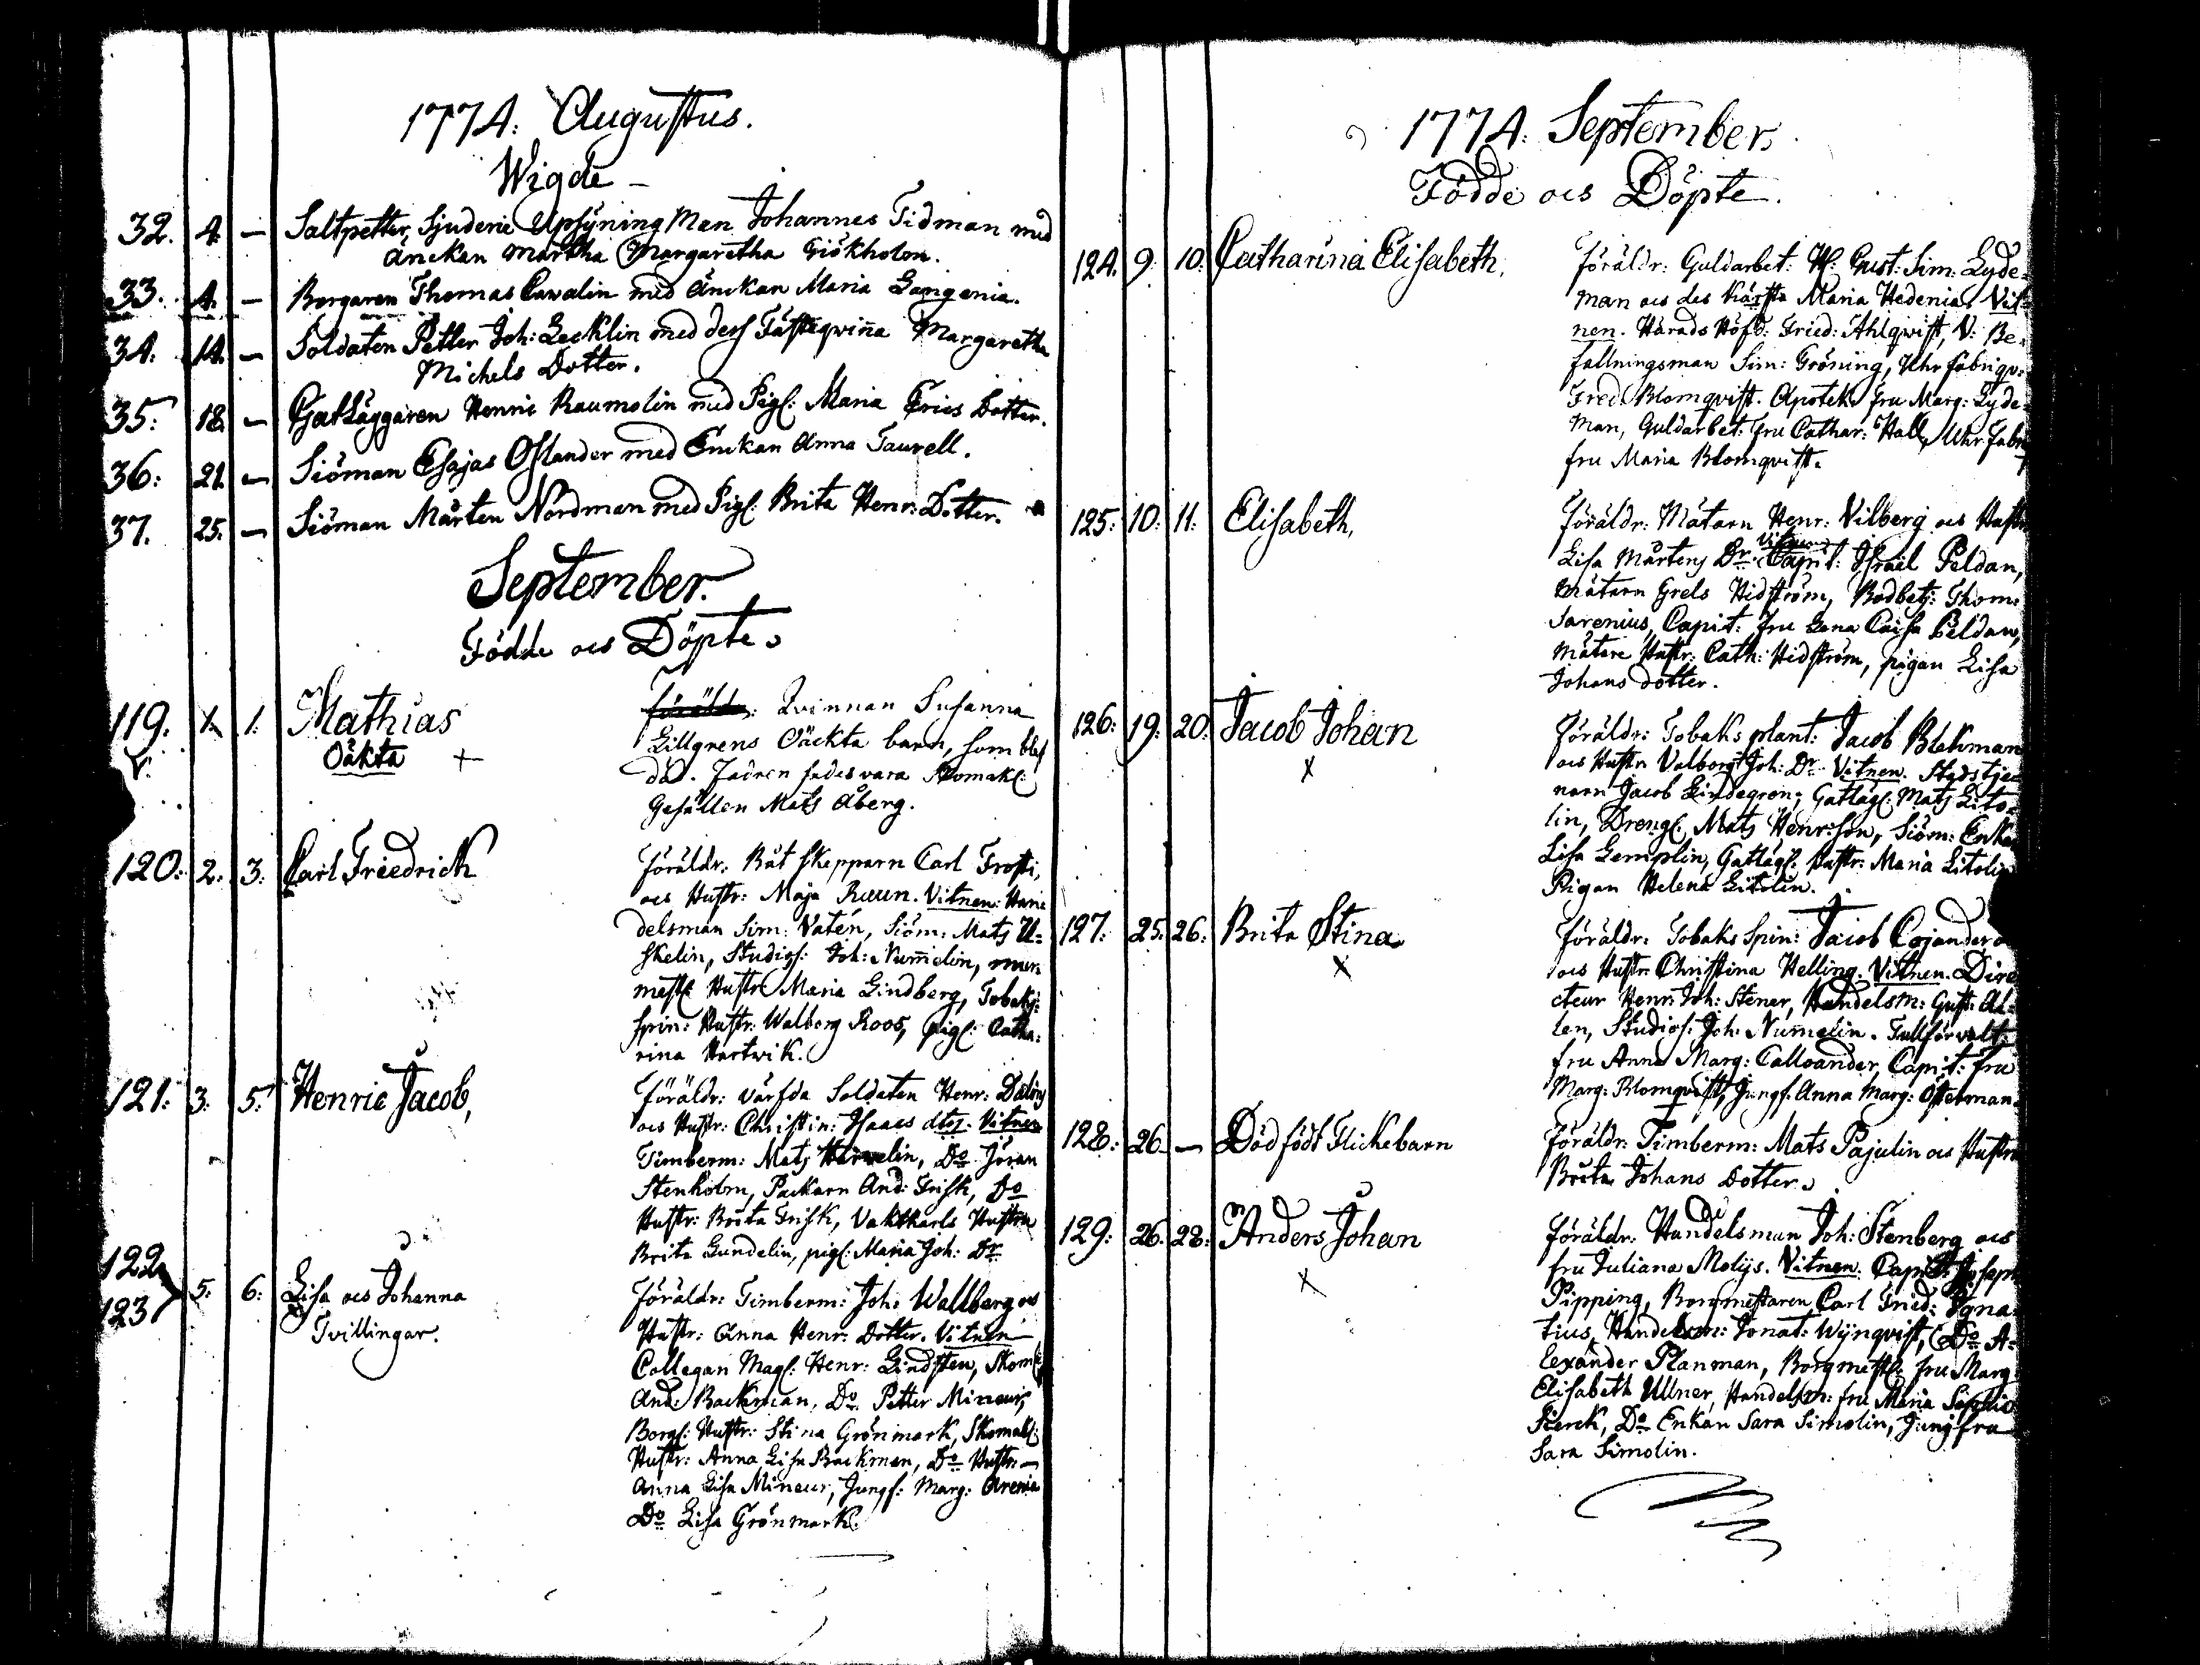 1774: Augustus.
Wigde –
32. 4. – Saltpetter Sjuderie Upsyning Man Johannes Tidman med
änckan Martha Margaretha Giökholm.
33. 4. – Borgaren Thomas Cawalin med änckan Maria Gangenia.
34. 14. – Soldaten Petter Joh: Lecklin med dess Fästeqwinna Margaretha
Michels Dotter.
35: 18. – Gatläggaren Henric Raumolin med Pig: Maria Erics Dotter.
36: 21. – Siöman Esajas Oslander med Enckan Anna Taurell.
37. 25. – Siöman Mårten Nordman med Pig: Brita Henr: Dotter.
September.
Födde och Döpte.
119. 1. 1. Mathias
Oäkta
föräldr: Qvinnan Susanna
Lillgrens Oäckta barn, som blef
död. Fadren sades vara Skomak:
Gesällen Mats Åberg.
120: 2. 3: Carl Friedrich
föräldr: Båt Skepparn Carl Frosti,
och Hustr: Maja Raun. Vitnen: Han
delsman Sim: Vatén, Siöm: Mats U=
skelin, Studios: Joh: Numelin, mur
mest: Hustr: Maria Lindberg, Tobaks:
spin: Hustr: Walborg Roos, pig: Catha:
rina Hartwik.
121: 3: 5: Henric Jacob,
föräldr: värfda Soldaten Henr:
och Hustr: Christin: Isaacs dtr. Vitnen
Timberm: Mats, Do Jöran
Stenholm, Packarn And: Frisk, Do
Hustr: Brita Frisk, Vaktkarls Hustru
Brita Gundelin, pig: Maria Joh: Dr
122
123 5: 6: Lisa och Johanna
Tvillingar.
föräldr: Timberm: Joh: Wallberg och
Hustr: Anna Henr: Dotter. Vitnen
Collegan Mag: Henr: Lindsten, Skom:
And: Backman, Do Petter Mineur,
Borg: Hustr: Stina Grönmark, Skomak:
Hustr: Anna Lisa Backman, Do Hustr:
Anna Lisa Mineur, Jungf: Marg: Arenia
Do Lisa Grönmark.
1774: September.
Födde och Döpte.
124. 9: 10: Catharina Elisabeth,
föräldr: Guldarbet: H: Gust: Sim: Lyde=
man och des Kärsta Maria Hedenia. Vit=
nen. Härads Höfd: Fried: Ahlqwist, V: Be=
fallningsman Sim: Gröning, Uhr fabriqv:
Fred: Blomqvist. Apotek: fru Marg: Lyde=
man, Guldarbet: Fru Cathar: Hall, Uhr fabr
fru Maria Blomqvist.
125: 10: 11: Elisabeth,
föräldr: Mätarn Henr: Vilberg och Hustr
Lisa Mårtens Dr. Vitnen Capit: Israel Peldan,
mätarn Grels Hidström, Bodbetj: Thom:
Sarenius, Capit: fru Lena Caisa Peldan,
mätare Hustr: Cath: Hidström, pigan Lisa
Johans dotter.
126: 19: 20: Jacob Johan
föräldr: Tobaks plant: Jacob Blekman
och Hustr: Valborg Joh: Dr Vitnen. Stadstje=
narn Jacob Lindegren, Gatläg: Mats Lito=
lin, Dreng: Mats Henrisson, Siöm: Enkan
Lisa Gemplin, Gatläg: Hustr: Maria Litolin
Pigan Helena Litolin.
127: 25: 26: Brita Stina
föräldr: Tobaks Spin: Jacob Cojander
och Hustr: Christina Helling. Vitnen. Dire
cteur Henr: Joh: Stener, Handelsm: Gust: Ah=
len, Studios: Joh: Numelin. Tullförvalt:
fru Anna Marg: Calloander, Capit: fru
Marg: Blomqvist, Jungf: Anna Marg: Österman.
128: 26 – Dödfödt Flickebarn
föräldr: Timberm: Mats Pajulin och Hustru
Brita Johans Dotter.
129: 26: 28: Anders Johan
föräldr: Handelsman Joh: Stenberg och
fru Juliana Molijs. Vitnen. Capit: Joseph
Pipping, Borgmestaren Carl Fried: Igna=
tius, Handelsm: Jonat: Wijnqvist, Do A=
lexander Planman, Borgmest: fru Marg:
Elisabeth Ullner, Handelsm: fru Maria Sophia
Pierck, Do Enkan Sara Simolin, Jungfru
Sara Simolin.